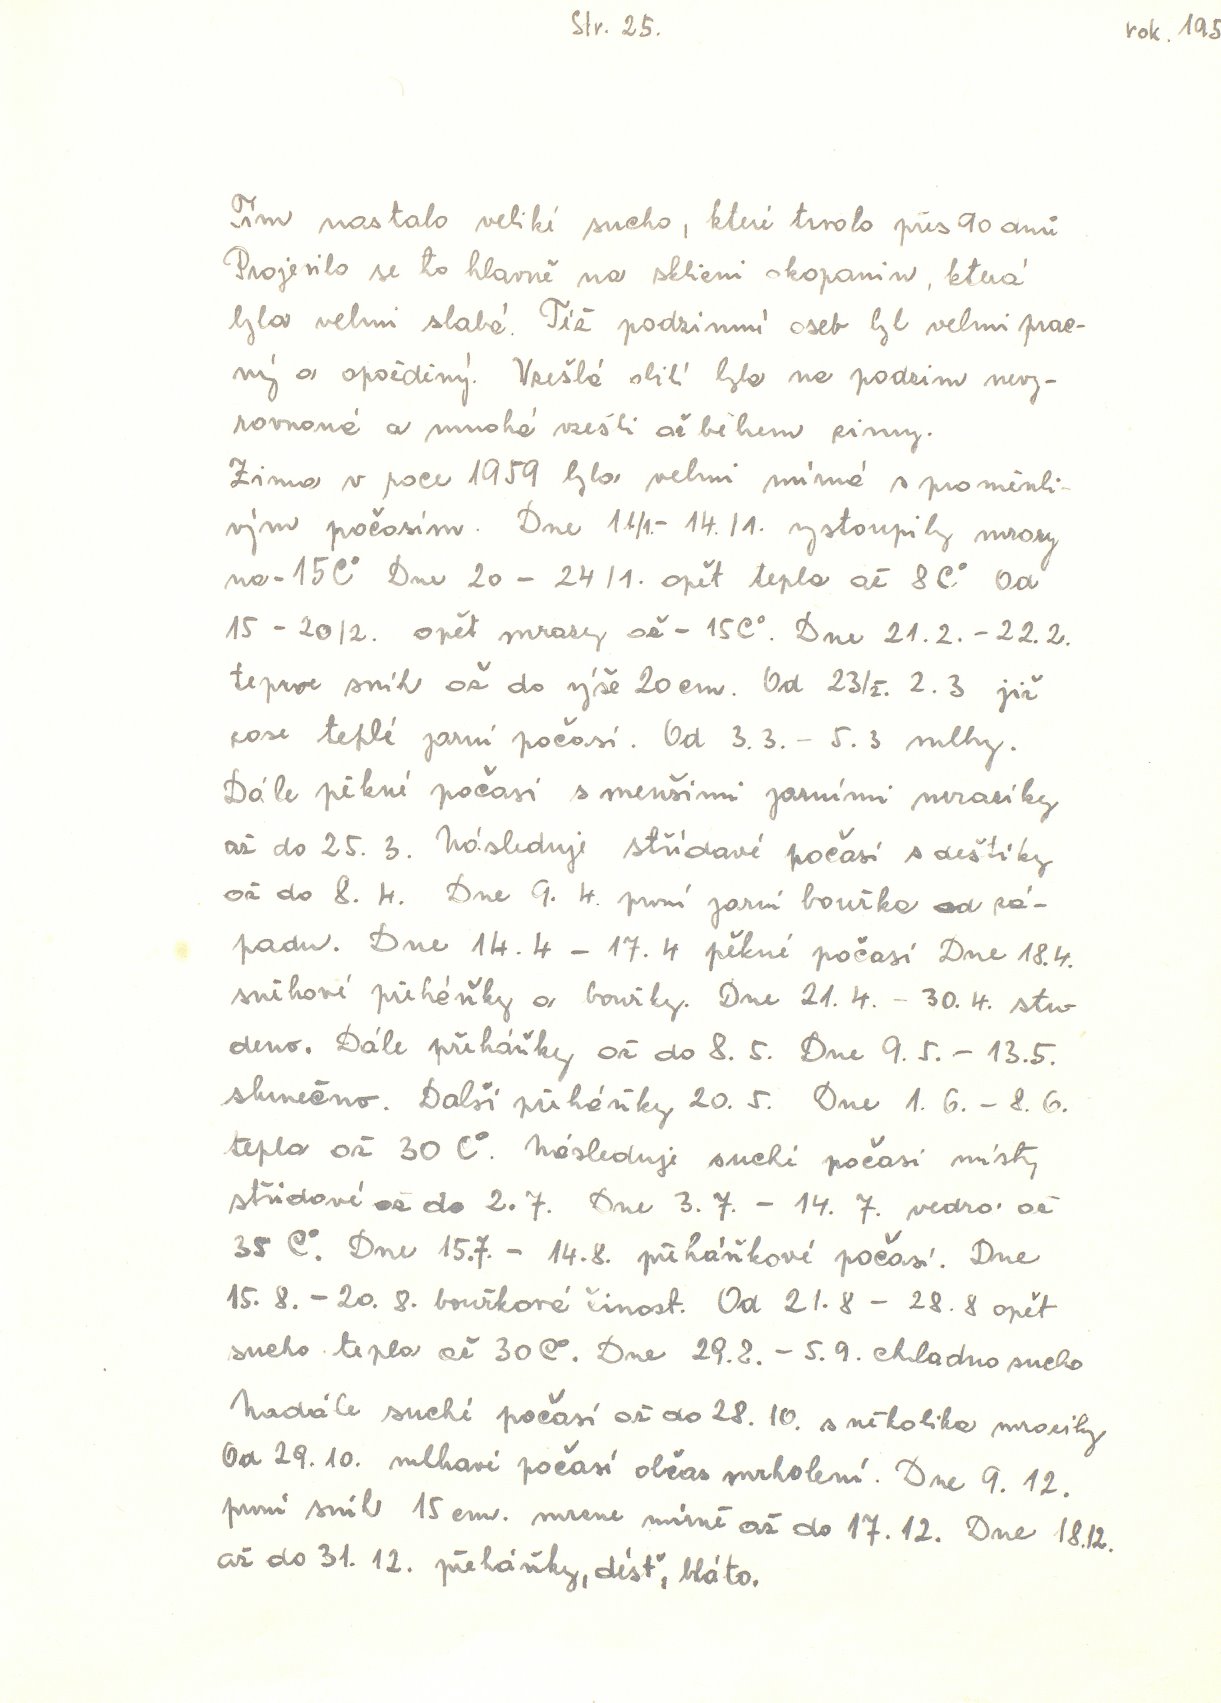 Str. 25.
rok. 195
Tím nastalo veliké sucho, které trvalo přes 90 dnů
Projevilo se to hlavně na sklizni okopanin, která
byla velmi slabá. Též podzimní oseb byl velmi prac-
ný a opožděný. Vzešlá obilí byla na podzim nevy-
rovnaná a mnohá vzešli až během zimy.
Zima v roce 1959 byla velmi mírná s proměnli-
vým počasím. Dne 11/1.- 14./1. vystoupily mrazy
na-15C° Dne 20 - 24/1. opět tepla až 8C° Od
15 - 20/2. opět mrazy až - 15C°. Dne 21.2. - 22.2.
teprve sníh až do výše 20cm. Od 23/II. 2.3 již
zase teplé jarní počasí. Od 3.3. - 5.3 mlhy.
Dále pěkné počasí s menšími jarními mrazíky
až do 25. 3. Následuje střídavé počasí s deštíky
až do 8. 4. Dne 9. 4. první jarní bouřka od zá-
padu. Dne 14.4 - 17.4 pěkné počasí Dne 18.4.
sněhové přeháňky a bouřky. Dne 21.4. - 30.4. stu-
deno. Dále přeháňky až do 8. 5. Dne 9.5. - 13.5.
slunečno. Další přeháňky 20. 5. Dne 1. 6. - 8. 6.
tepla až 30 C°. Následuje suché počasí místy
střídavé až do 2.7. Dne 3.7. - 14. 7. vedro až
35 C°. Dne 15.7. - 14.8. přeháňkové počasí. Dne
15. 8. - 20. 8. bouřková činost. Od 21.8 - 28.8 opět
sucho tepla až 30C°. Dne 29.8. - 5.9. chladno sucho
Nadále suché počasí až do 28. 10. s několika mrazíky
Od 29.10. mlhavé počasí občas mrholení. Dne 9. 12.
první sníh 15 cm. mrzne mírně až do 17.12. Dne 18.12.
až do 31. 12. přeháňky, déšť, bláto.